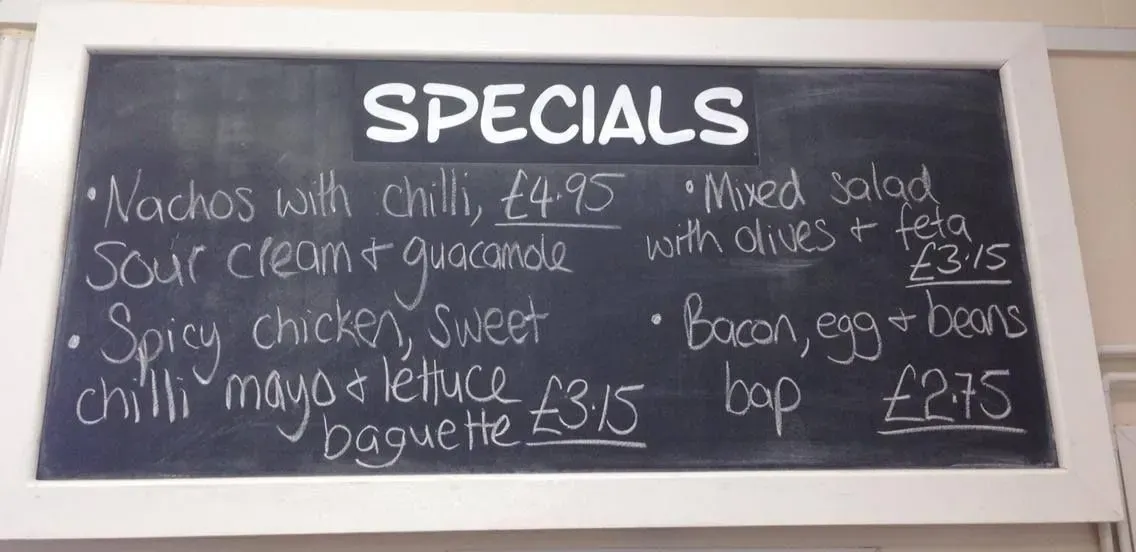 SPECIALS
• Nachos with chilli, £4.95
sour cream + guacamole
• Spicy chicken, sweet
chilli mayo + lettuce
baguette £3.15
• Mixed salad
with olives + feta
£3.15
• Bacon, egg + beans
bap £2.75